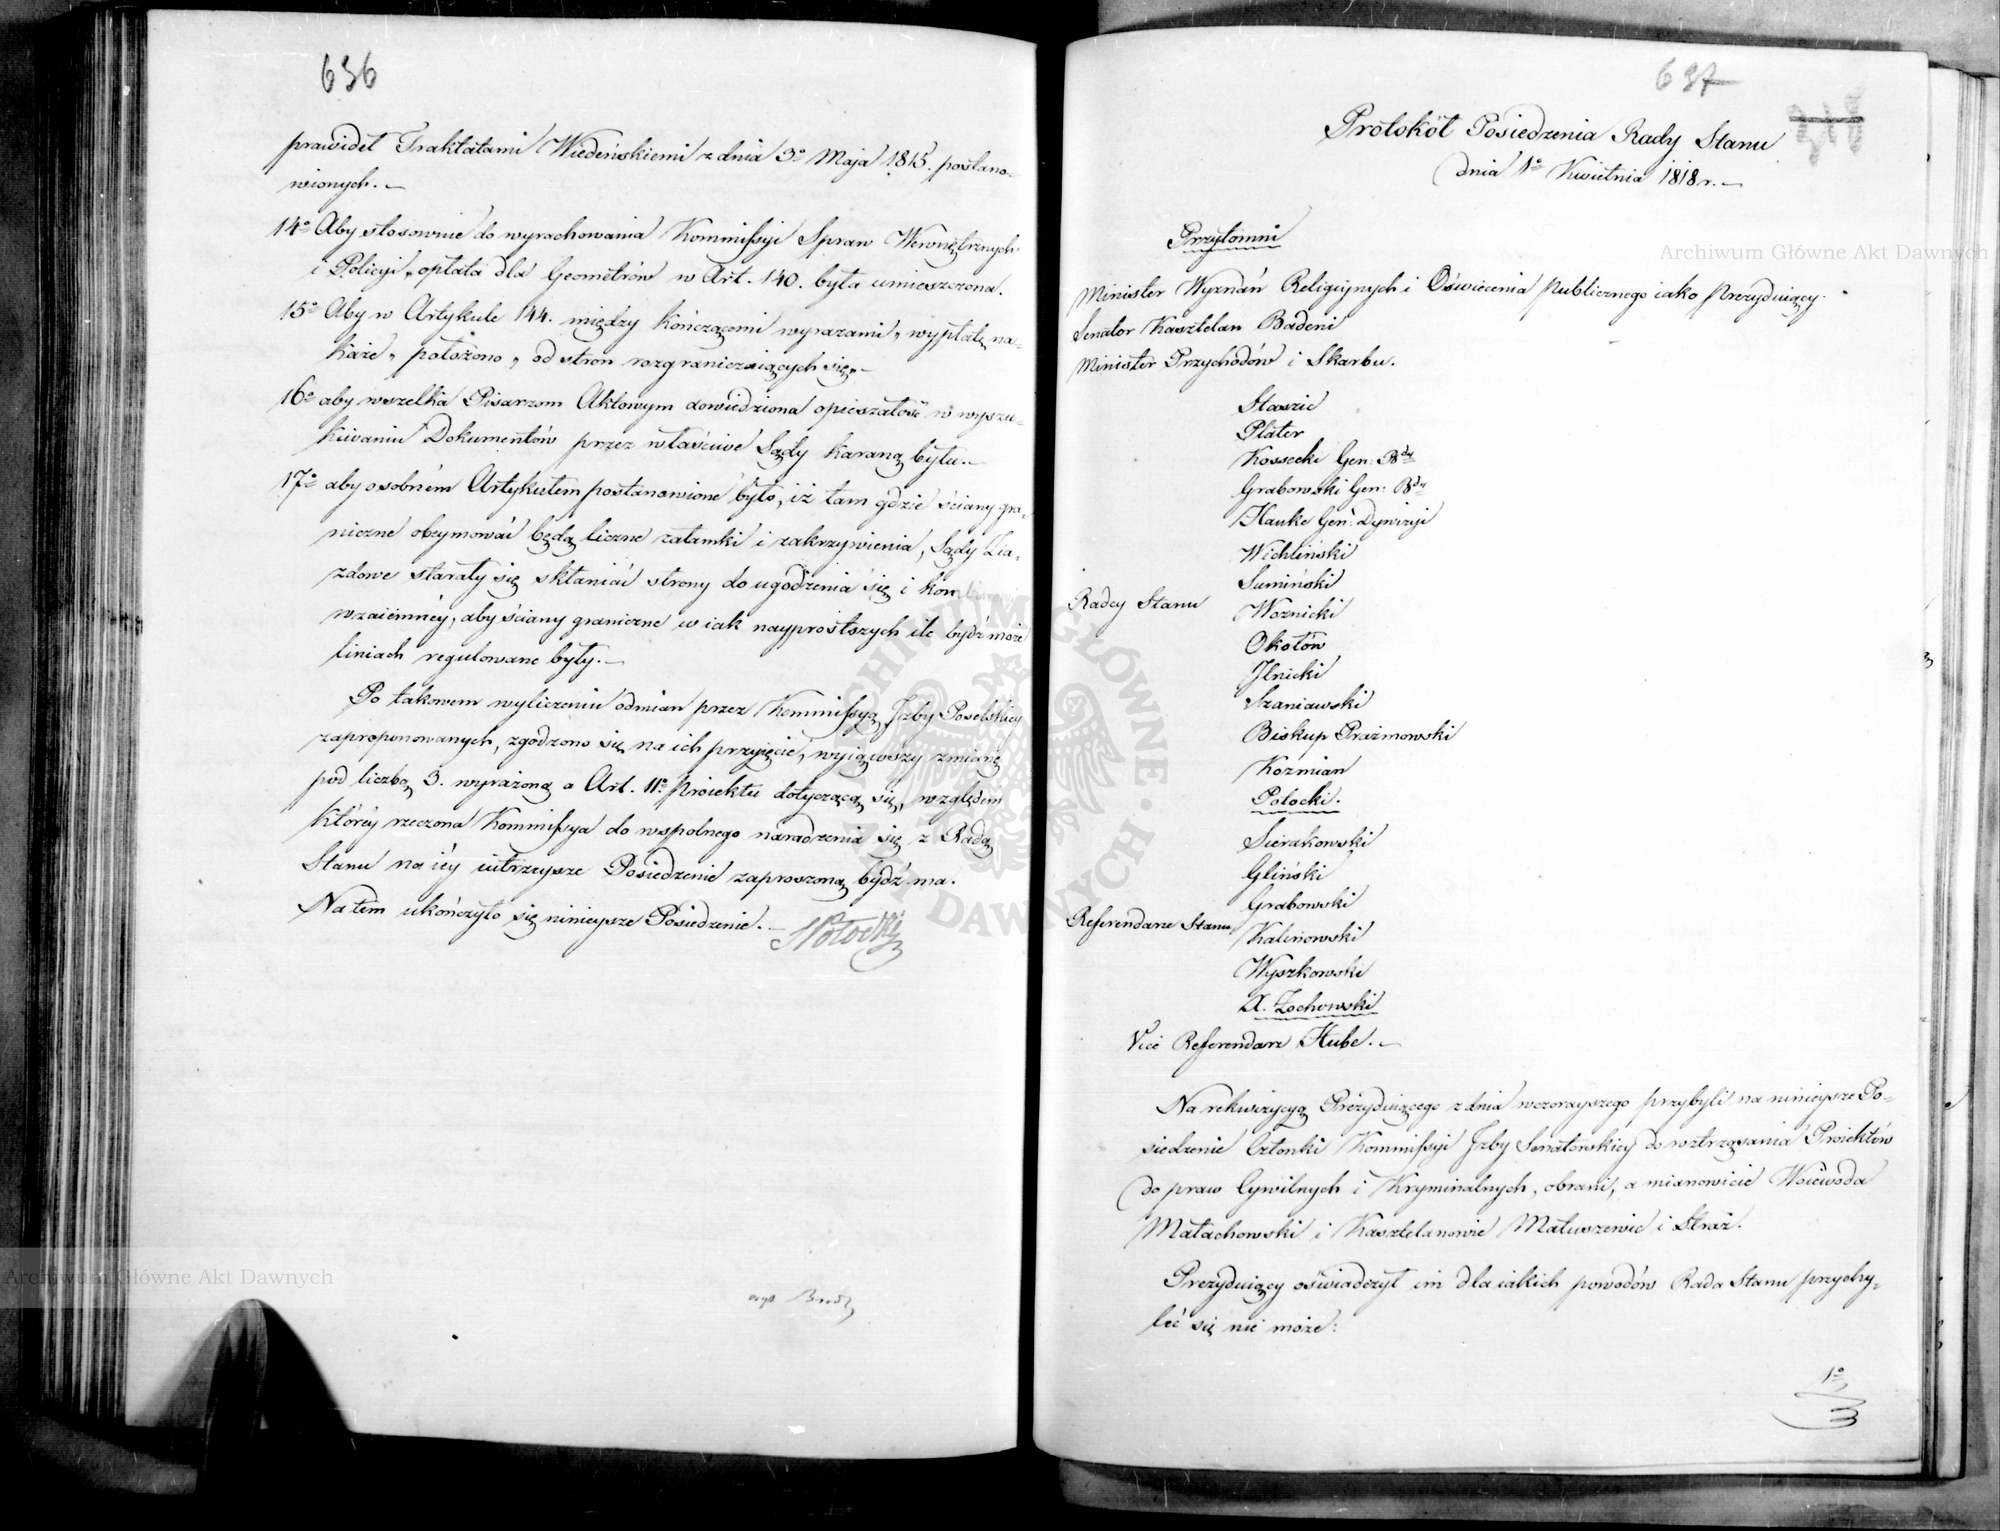 636
prawideł Traktatami Wiedeńskiemi z dnia 3º Maja 1815. postano-
wionych.
14º Aby stosownie do wyrachowania Kommissyi Spraw Wewnętrznych
i Policyi, opłata dla Geometrów w Art. 140. była umieszczona.
15º Aby w Artykule 144. między kończącemi wyrazami „ wypłatę na-
każe „ położono „ od stron rozgraniczaiących się „
16º aby wszelka Pisarzom Aktowym dowiedziona opieszałość w wyszu-
kiwaniu Dokumentów przez właściwe Sądy karaną była.
17º aby osobném Artykułem postanowione było, iż tam gdzie ściany gra-
niczne obeymować będą liczne załamki i zakrzywienia, Sądy Zia-
zdowe starały się skłaniać strony do ugodzenia się i
wzaiemnéy, aby ściany graniczne w iak nayprostszych ile bydź może
liniach regulowane były.
Po takowem wyliczeniu odmian przez Kommissyą Izby Poselskiey
zaproponowanych, zgodzono się na ich przyięcie, wyiąwszy zmianę
pod liczbą 3. wyrażoną a Art. 11º Proiektu dotyczącą się, względem
któréy rzeczona Kommissya do wspolnego naradzenia się z Radą
Stanu na iéy iutrzeysze Posiedzenie zaproszoną bydź ma.
Na tém ukończyło się ninieysze Posiedzenie.
SPotocki
637
Protokół Posiedzenia Rady Stanu
dnia 1º Kwietnia 1818 r.
Przytomni
Minister Wyznań Religiynych i Oświecenia Publicznego iako Prezyduiący.
Senator Kasztelan Badeni
Minister Przychodów i Skarbu.
Staszic
Plater
Kossecki Gen: Bdy
Grabowski Gen: Bdy
Hauke Gen: Dywizyi
Wichliński
Sumiński
Radcy Stanu
Woznicki
Okołów
Ilnicki
Szaniawski
Biskup Prażmowski
Kozmian
Potocki.
Sierakowski
Gliński
Grabowski
Referendarze Stanu
Kalinowski
Wyszkowski
X. Żochowski
Vice Referendarz Hube.
Na rekwizycyą Prezyduiącego z dnia wczorayszego przybyli na ninieysze Po-
siedzenie Członki Kommissyi Izby Senatorskiey do roztrząsania Proiektów
do praw Cywilnych i Kryminalnych, obrani, a mianowicie Woiewoda
Małachowski i Kasztelanowie Matuszewic i Straż.
Prezyduiący oświadczył im dla iakich powodów Rada Stanu przychy-
lić się nie może:
1º
Archiwum Główne Akt Dawnych
Archiwum Główne Akt Dawnych
ARCHIWUM GŁÓWNE AKT DAWNYCH